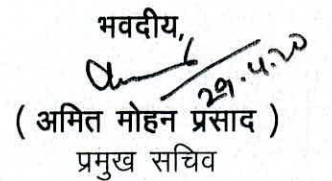 भवदीय,
29.4.20
( अमित मोहन प्रसाद )
प्रमुख सचिव